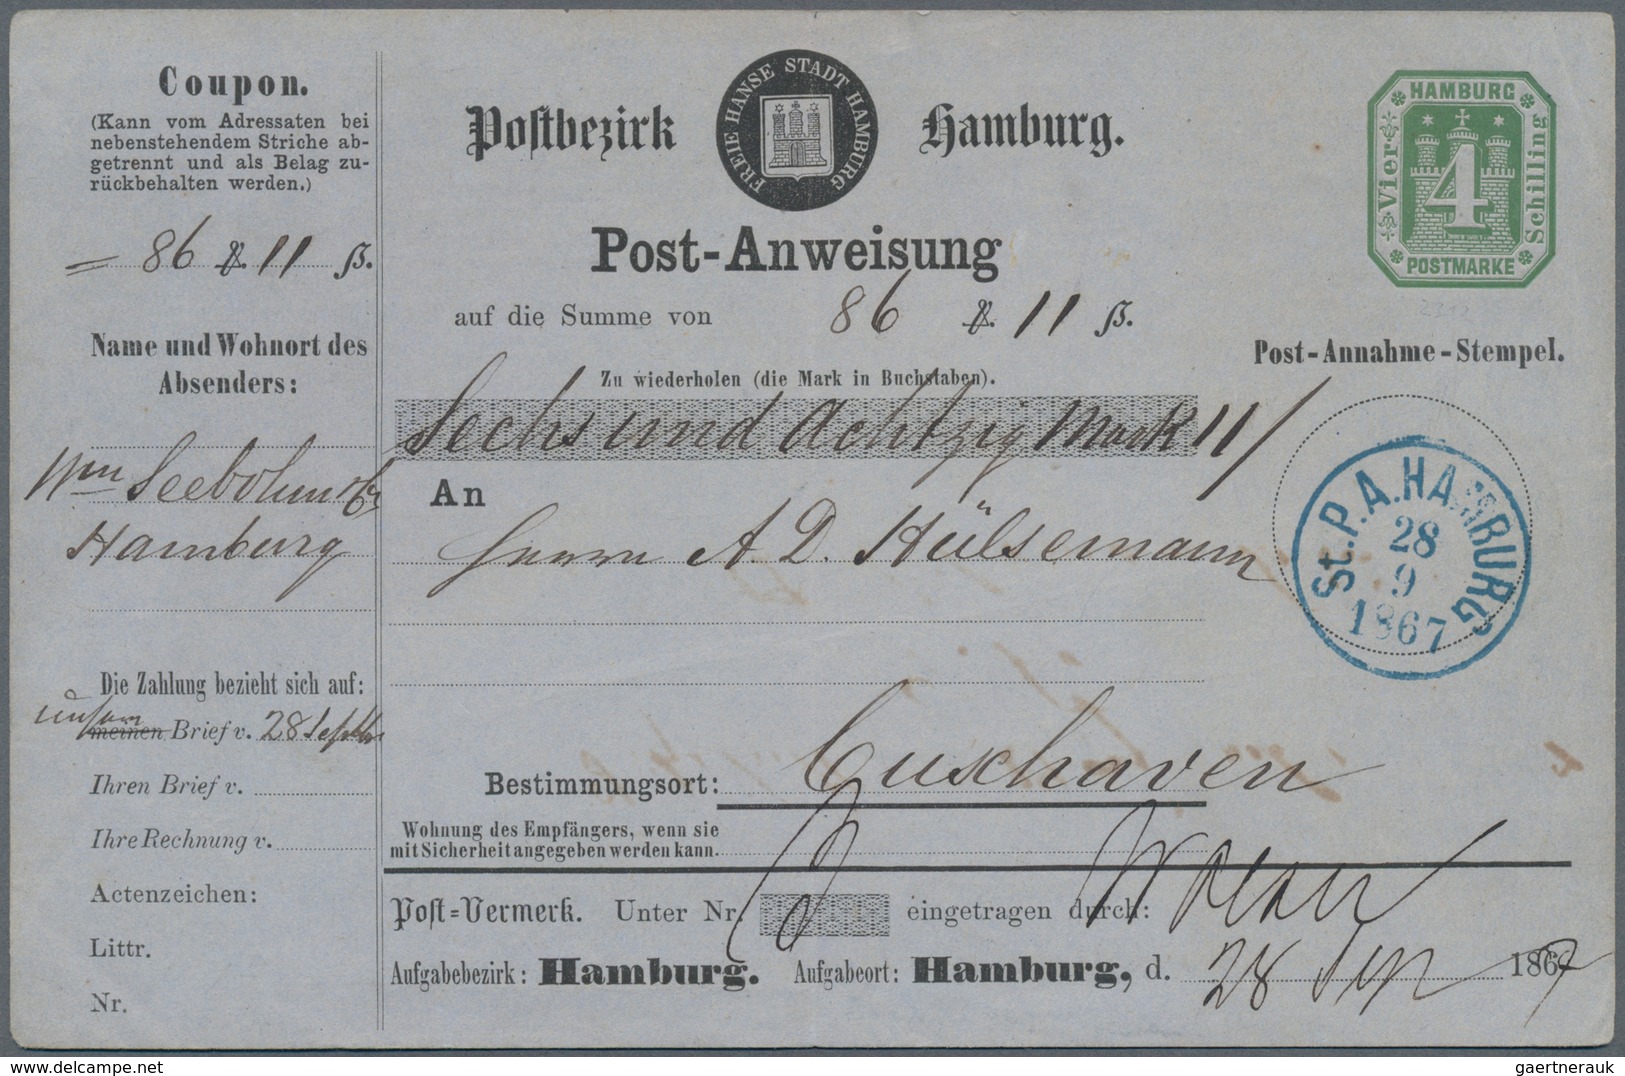 Coupon.
(Kann vom Adressaten bei
nebenstehendem Striche ab-
getrennt und als Belag zu-
rückbehalten werden.)
= 86 ₰. 11 β.
Name und Wohnort des
Absenders:
Wm Seebohm
Hamburg
Die Zahlung bezieht sich auf:
unsern
meinen Brief v. 28 Septbr
Ihren Brief v.
Ihre Rechnung v.
Actenzeichen:
Littr.
Nr.
Postbezirk Hamburg.
FREIE HANSE STADT HAMBURG
Post-Anweisung
auf die Summe von 86 ₰. 11 β.
Zu wiederholen (die Mark in Buchstaben).
Sechs und Achtzig Mark 11/
An
Herrn A. D. Hülsemann
Bestimmungsort: Cuxhaven
Wohnung des Empfängers, wenn sie
mit Sicherheit angegeben werden kann.
Post-Vermerk. Unter Nr. eingetragen durch:
Aufgabebezirk: Hamburg. Aufgabeort: Hamburg, d. 28 Sep 1867
HAMBURG
Vier
4
Schilling
POSTMARKE
Post-Annahme-Stempel.
St. P. A. HAMBURG
28
9
1867
delcampe.net
gaertnerauk